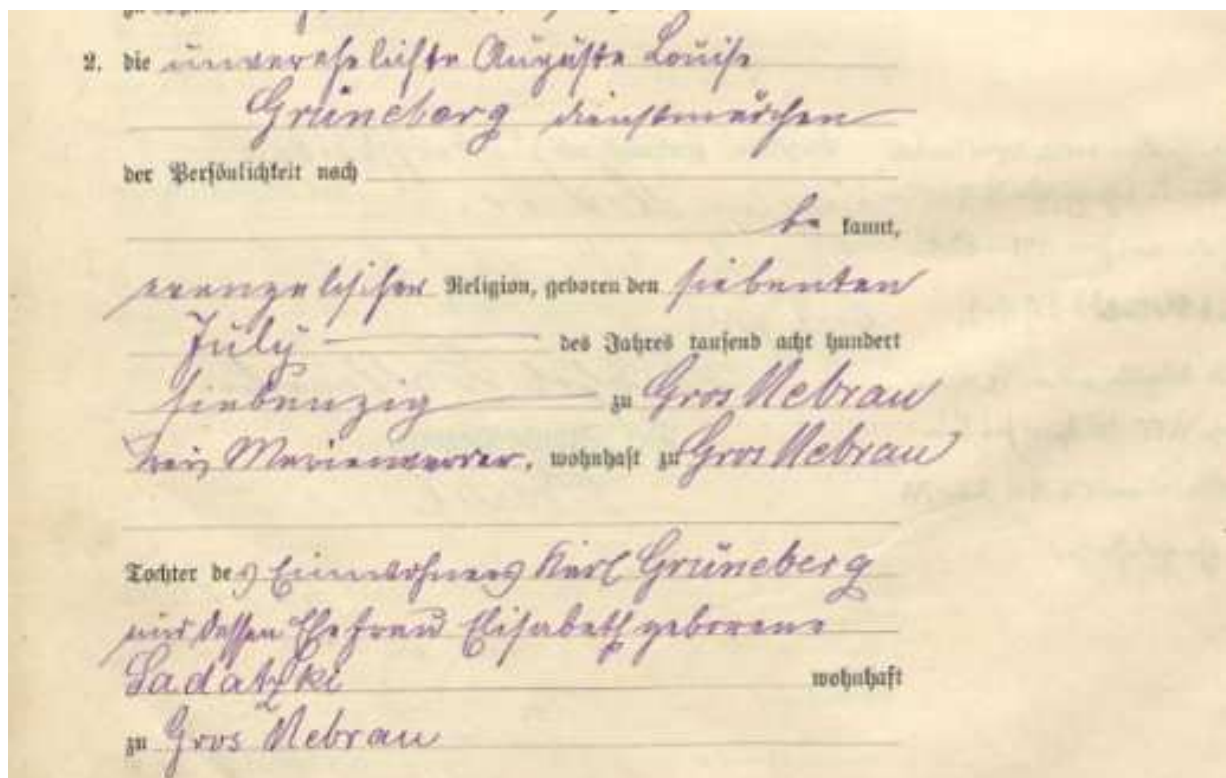 2. die unverehelichte Auguste Louise
Grüneberg dienstmädchen
der Persönlichkeit nach
be kannt,
evangelischer Religion, geboren den siebenten
July des Jahres tausend acht hundert
siebenzig zu Gros Nebrau
Kreis Marienwerder, wohnhaft zu Gros Nebrau
Tochter des Einwohners Karl Grüneberg
und dessen Ehefrau Elisabeth geborene
Sadatzki wohnhaft
zu Gros Nebrau